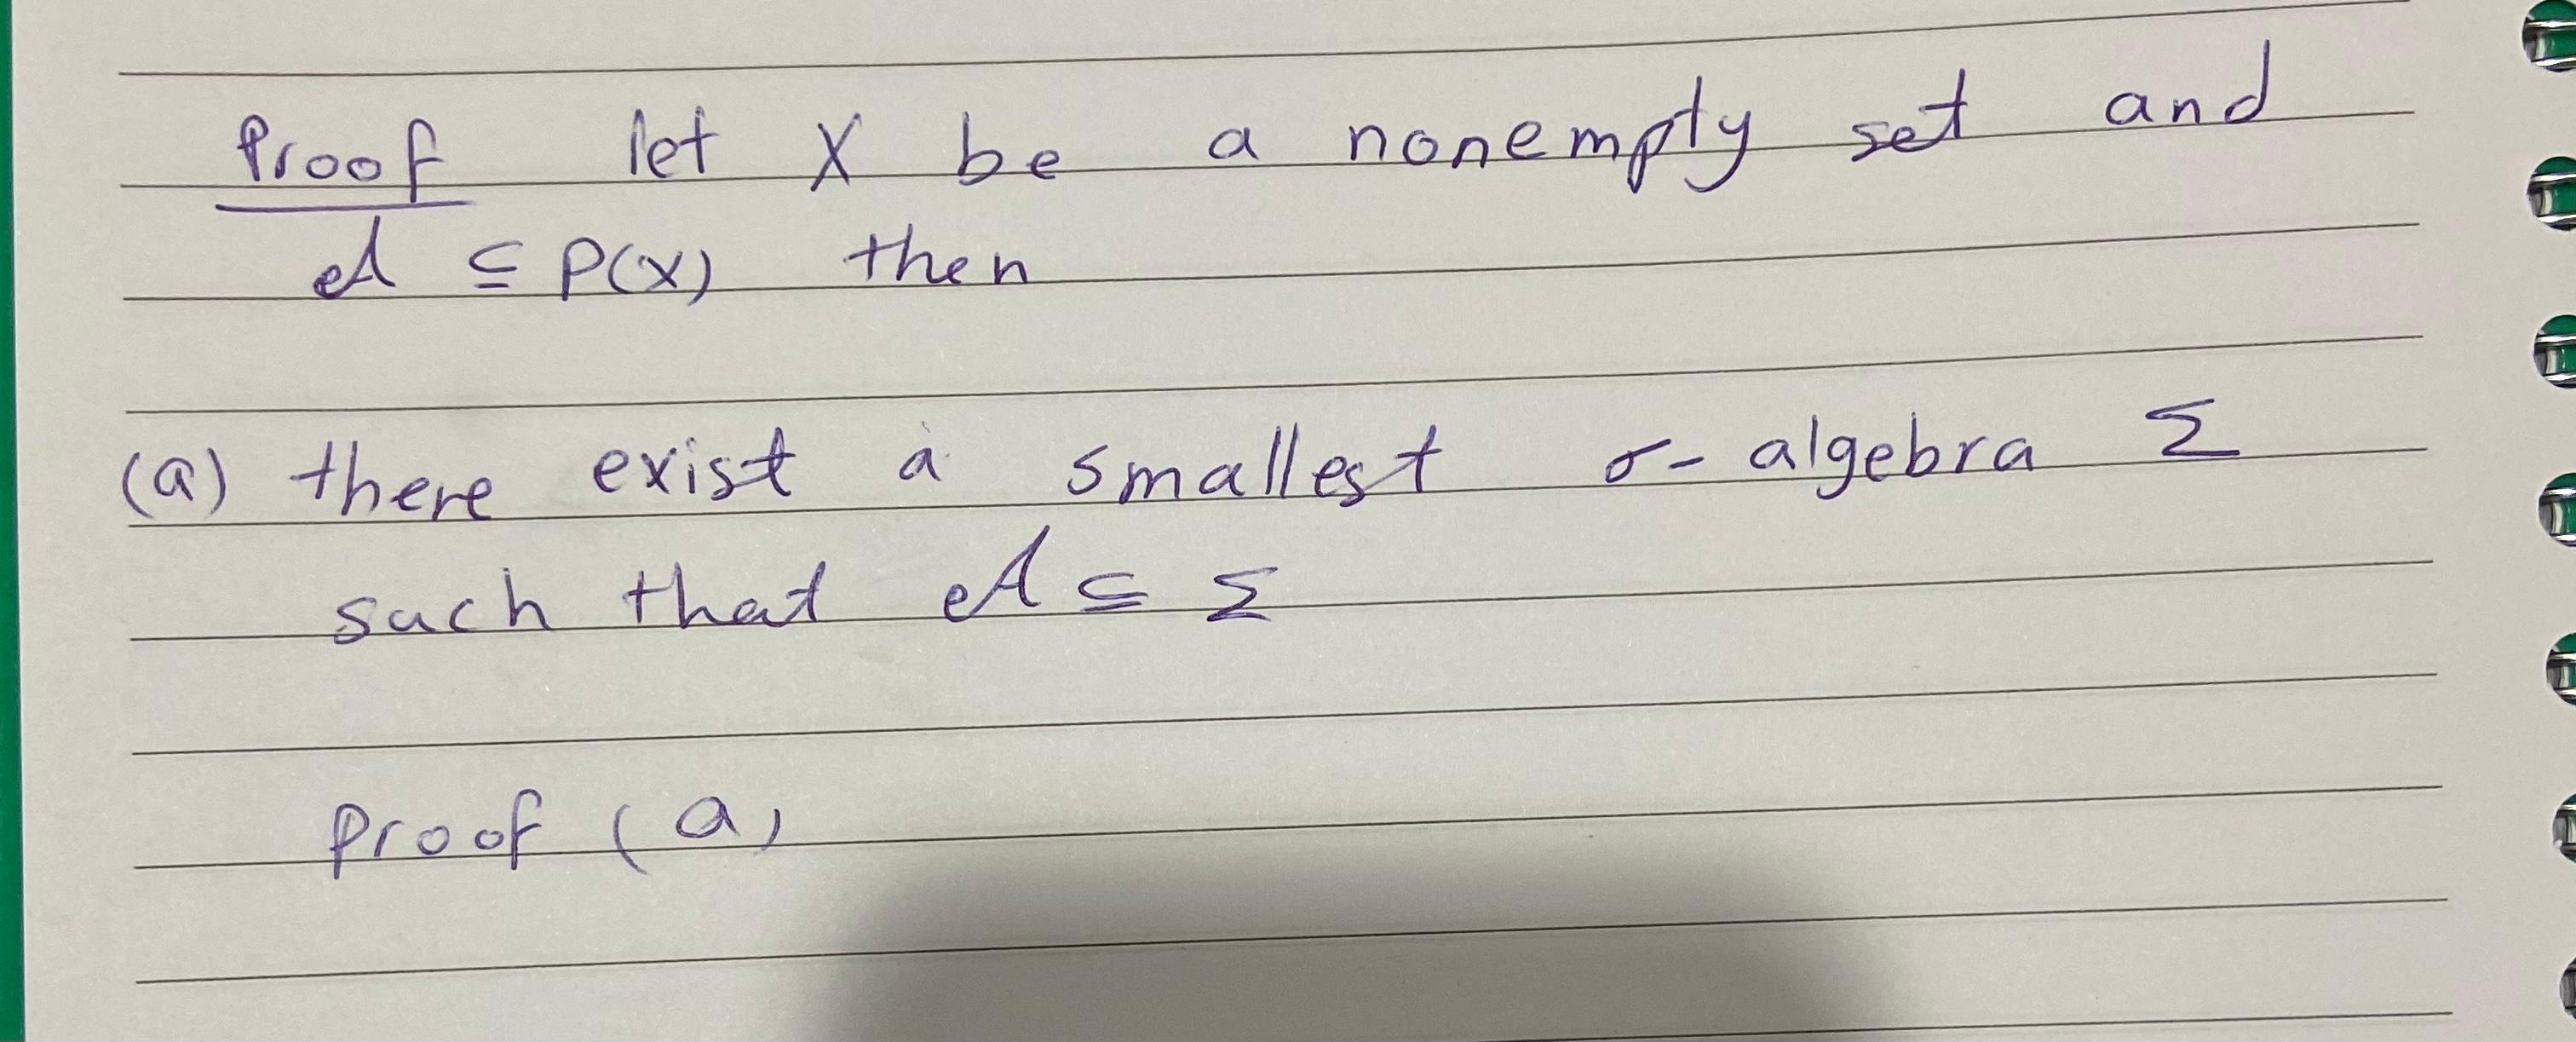 Proof let X be a nonempty set and
𝒜 ⊆ P(X) then
(a) there exist a smallest σ- algebra Σ
such that 𝒜 ⊆ Σ
Proof (a)